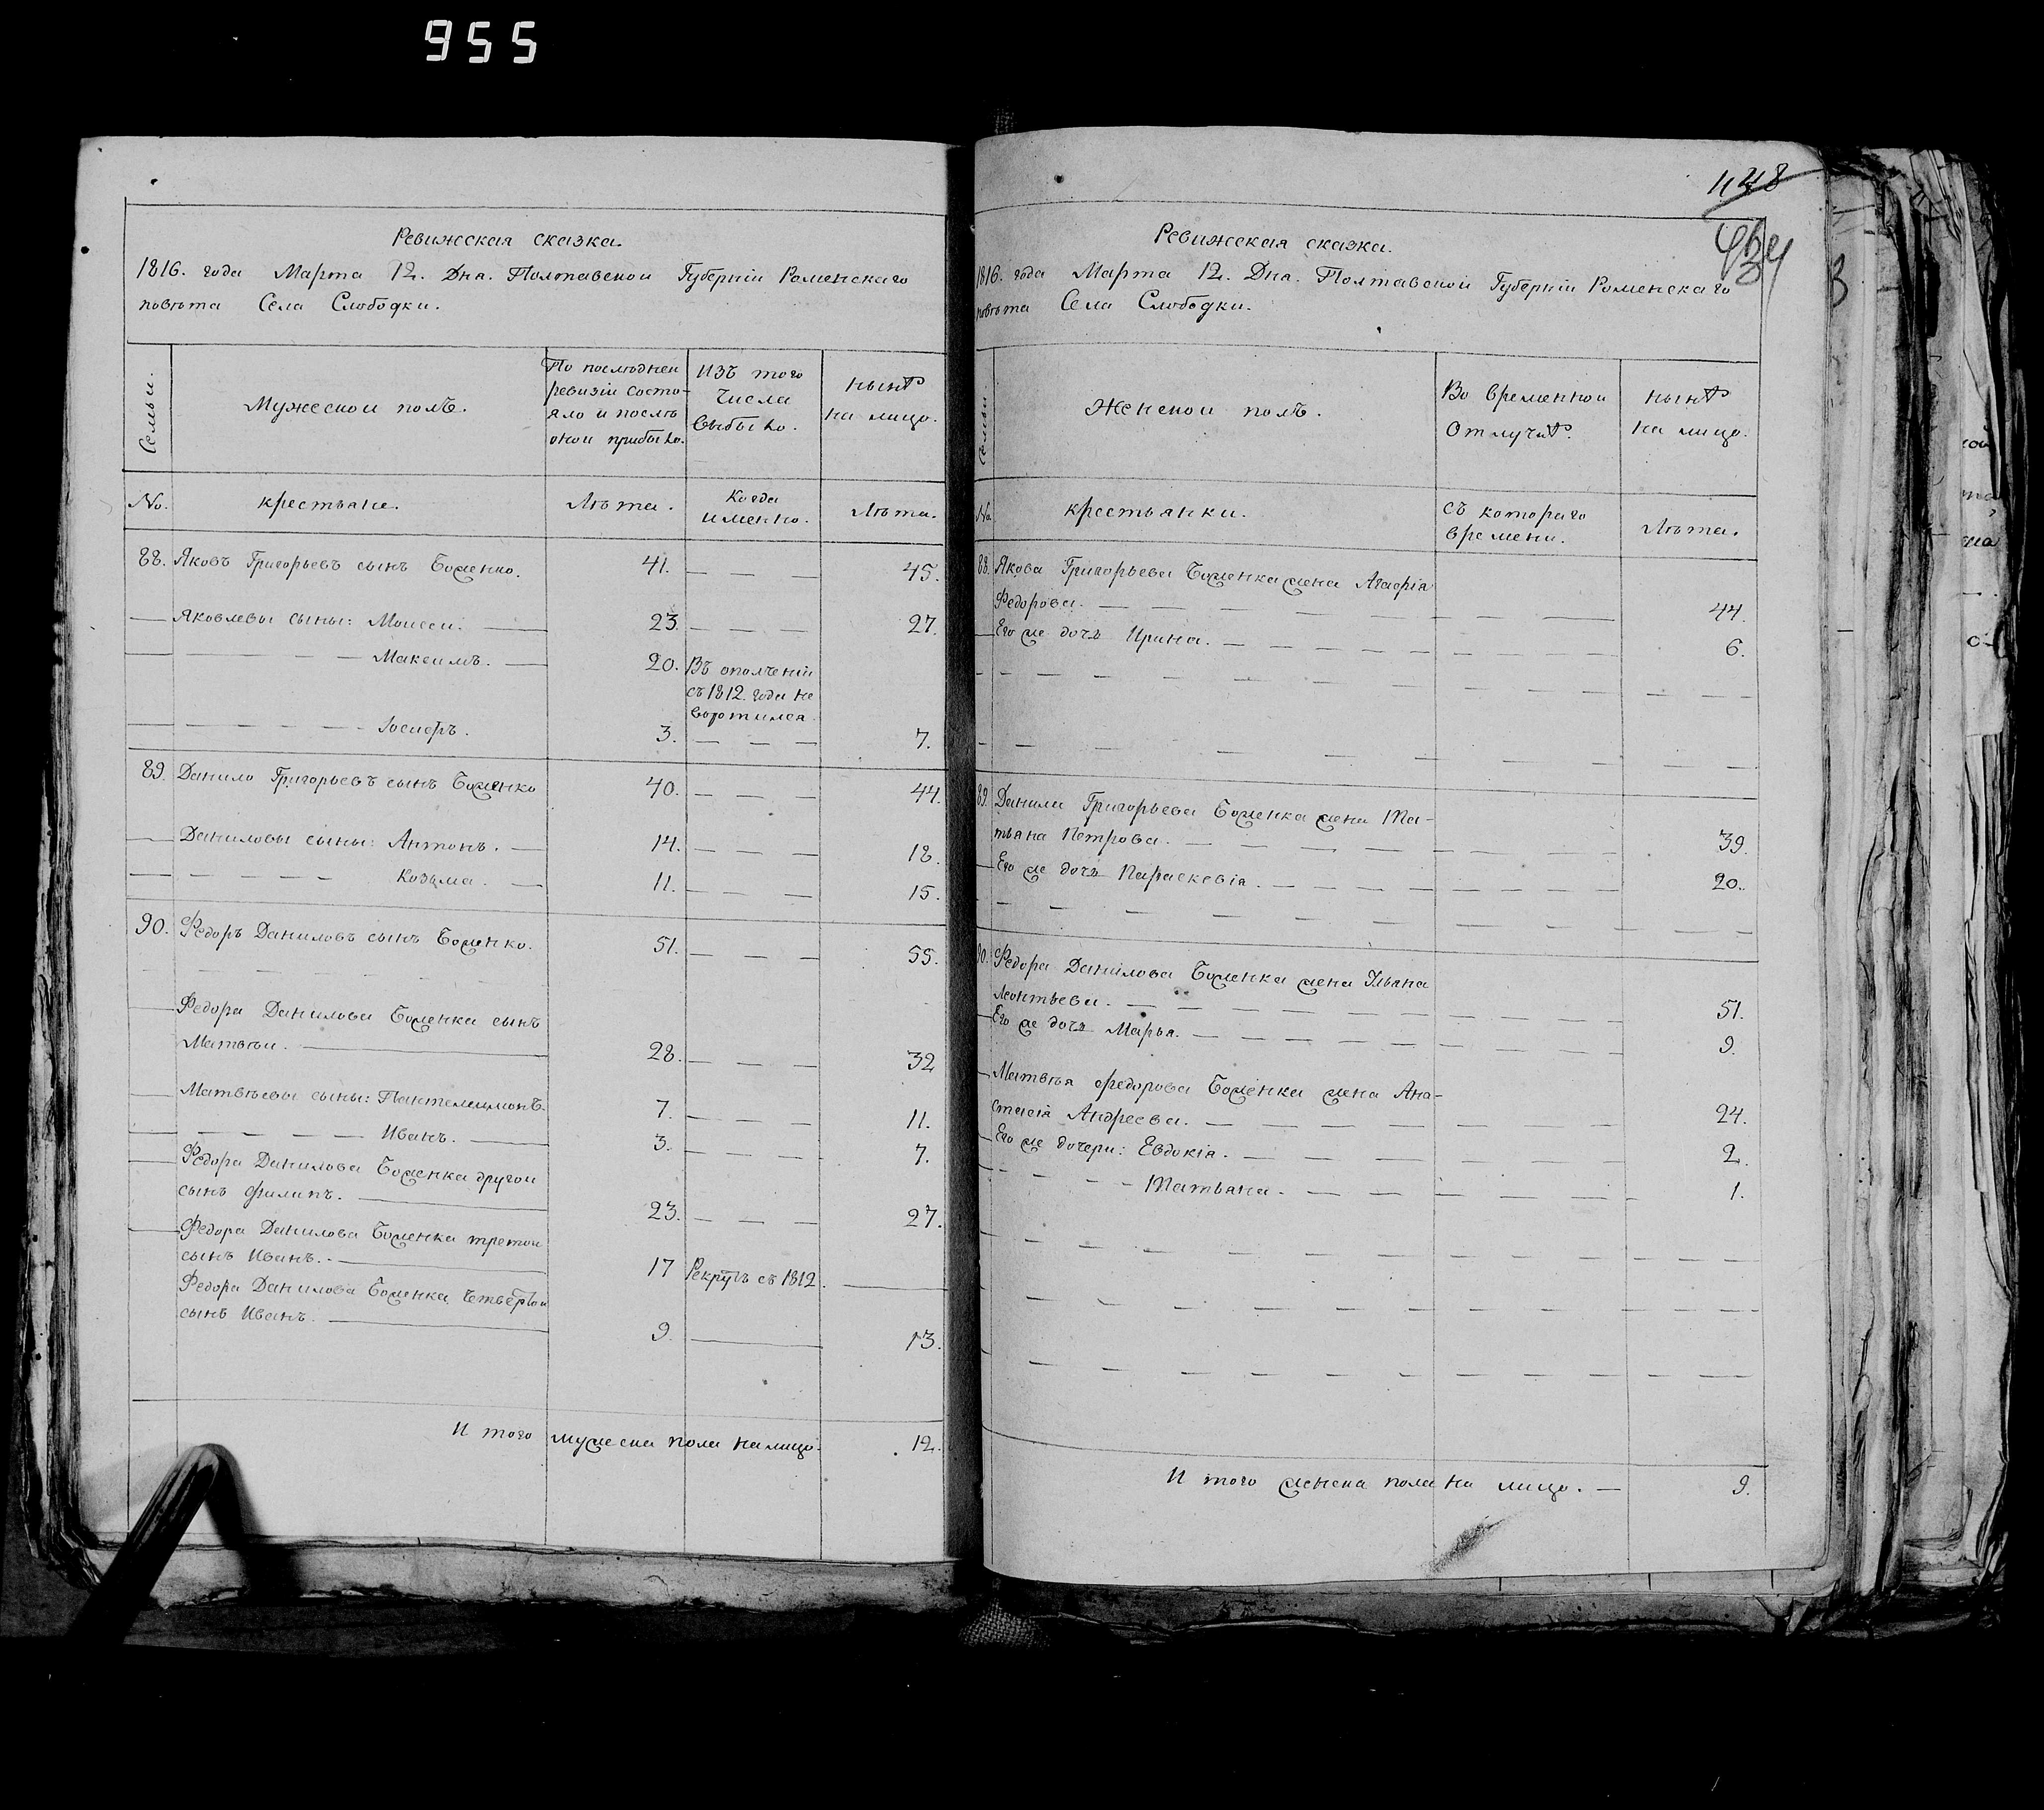 955
Ревижская сказка.
1816. года Марта 12. Дна. Полтавской Губерніи Роменскаго
повѣта Села Слободки.
Семьи.
Мужескои полъ.
По послѣднеи
ревизіи состо-
яло и послѣ
онои прибыло.
Изъ того
числа
выбыло.
нынѣ
на лицо.
No.
крестьяне.
Лѣта.
Когда
именно.
Лѣта.
88. Яковъ Григорьевъ сынъ Боженко. 41. 45.
Яковлевы сыны: Моисеи. 23. 27.
Максимъ. 20. Въ ополченіи
съ 1812. года не
воротился.
Іосифъ. 3. 7.
89. Данило Григорьевъ сынъ Боженко 40. 44.
Даниловы сыны: Антонъ. 14. 18.
Козьма. 11. 15.
90. Федоръ Даниловъ сынъ Боженко. 51. 55.
Федора Данилова Боженка сынъ
Матвѣи. 28. 32
Матвѣевы сыны: Пантелеимонъ. 7. 11.
Иванъ. 3. 7.
Федора Данилова Боженка другои
сынъ Филипъ. 23. 27.
Федора Данилова Боженка третои
сынъ Иванъ. 17 Рекрутъ съ 1812.
Федора Данилова Боженка четвертои
сынъ Иванъ. 9. 13.
И того мужеска пола на лицо. 12.
448
Ревижская сказка.
1816. года Марта 12. Дна. Полтавской Губерніи Роменскаго
повѣта Села Слободки.
Семьи
Женскои полъ.
Во временнои
отлучкѣ.
нынѣ
на лицо.
No
крестьянки.
съ котораго
времени.
Лѣта.
88. Якова Григорьева Боженка жена Агафіа
Федорова. 44.
Его же дочь Ирина. 6.
89. Данила Григорьева Боженка жена Та-
тьяна Петрова. 39.
Его же дочь Параскевіа. 20.
90. Федора Данилова Боженка жена Ульяна
Леонтьева. 51.
Его же дочь Марья. 9.
Матвѣя Федорова Боженка жена Ана-
стасіа Андреева. 24.
Его же дочери: Евдокіа. 2.
Татьяна. 1.
И того женска пола на лицо. 9.